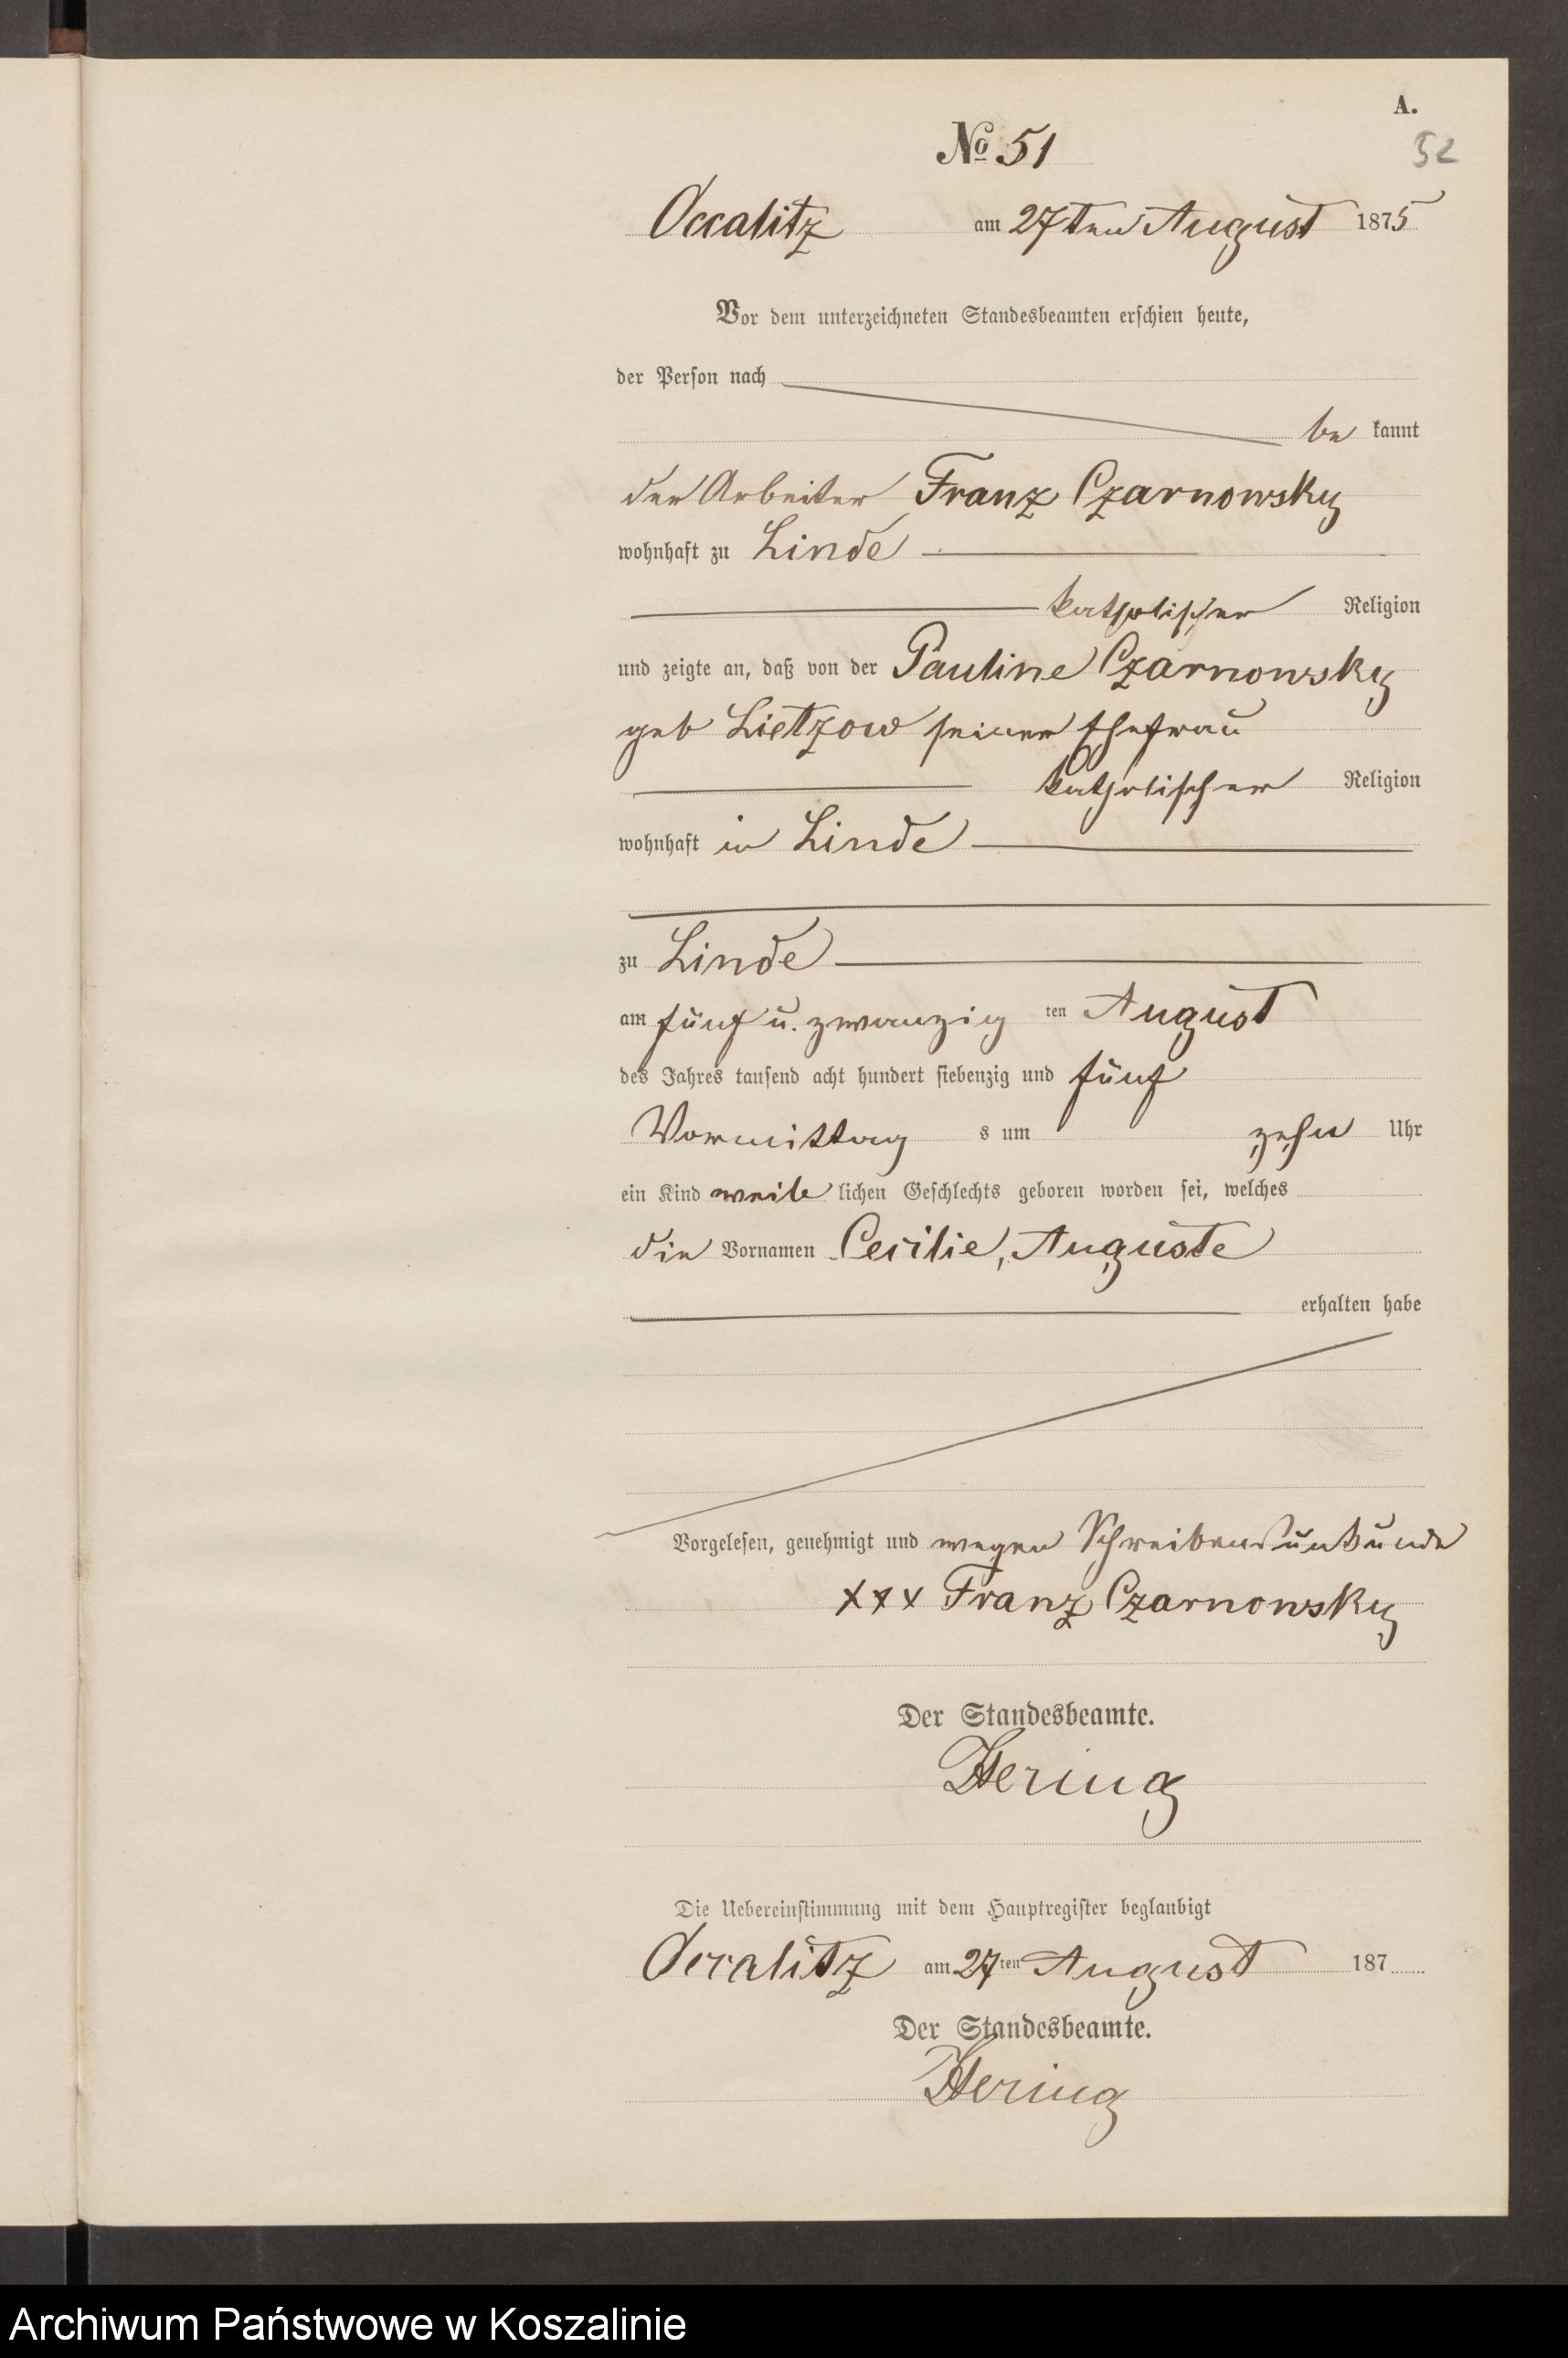 A.
№ 51
52
Occalitz am 27ten August 1875
Vor dem unterzeichneten Standesbeamten erschien heute,
der Person nach
be kannt
der Arbeiter Franz Czarnowsky
wohnhaft zu Linde
katholischer Religion
und zeigte an, daß von der Pauline Czarnowsky
geb Lietzow seiner Ehefrau
katholischer Religion
wohnhaft in Linde
zu Linde
am fünf u. zwanzig ten August
des Jahres tausend acht hundert siebenzig und fünf
Vormittag s um zehn Uhr
ein Kind weib lichen Geschlechts geboren worden sei, welches
die Vornamen Cecilie, Auguste
erhalten habe
Vorgelesen, genehmigt und wegen Schreibensunkunde
xxx Franz Czarnowsky
Der Standesbeamte.
Hering
Die Uebereinstimmung mit dem Hauptregister beglaubigt
Occalitz am 27ten August 187
Der Standesbeamte.
Hering
Archiwum Państwowe w Koszalinie